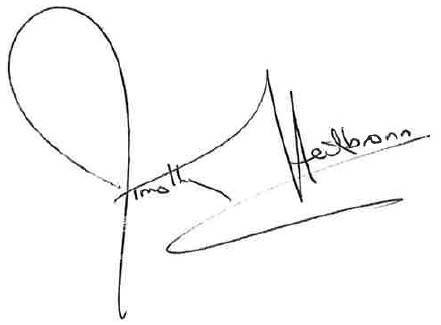 Timothy Heilbronn